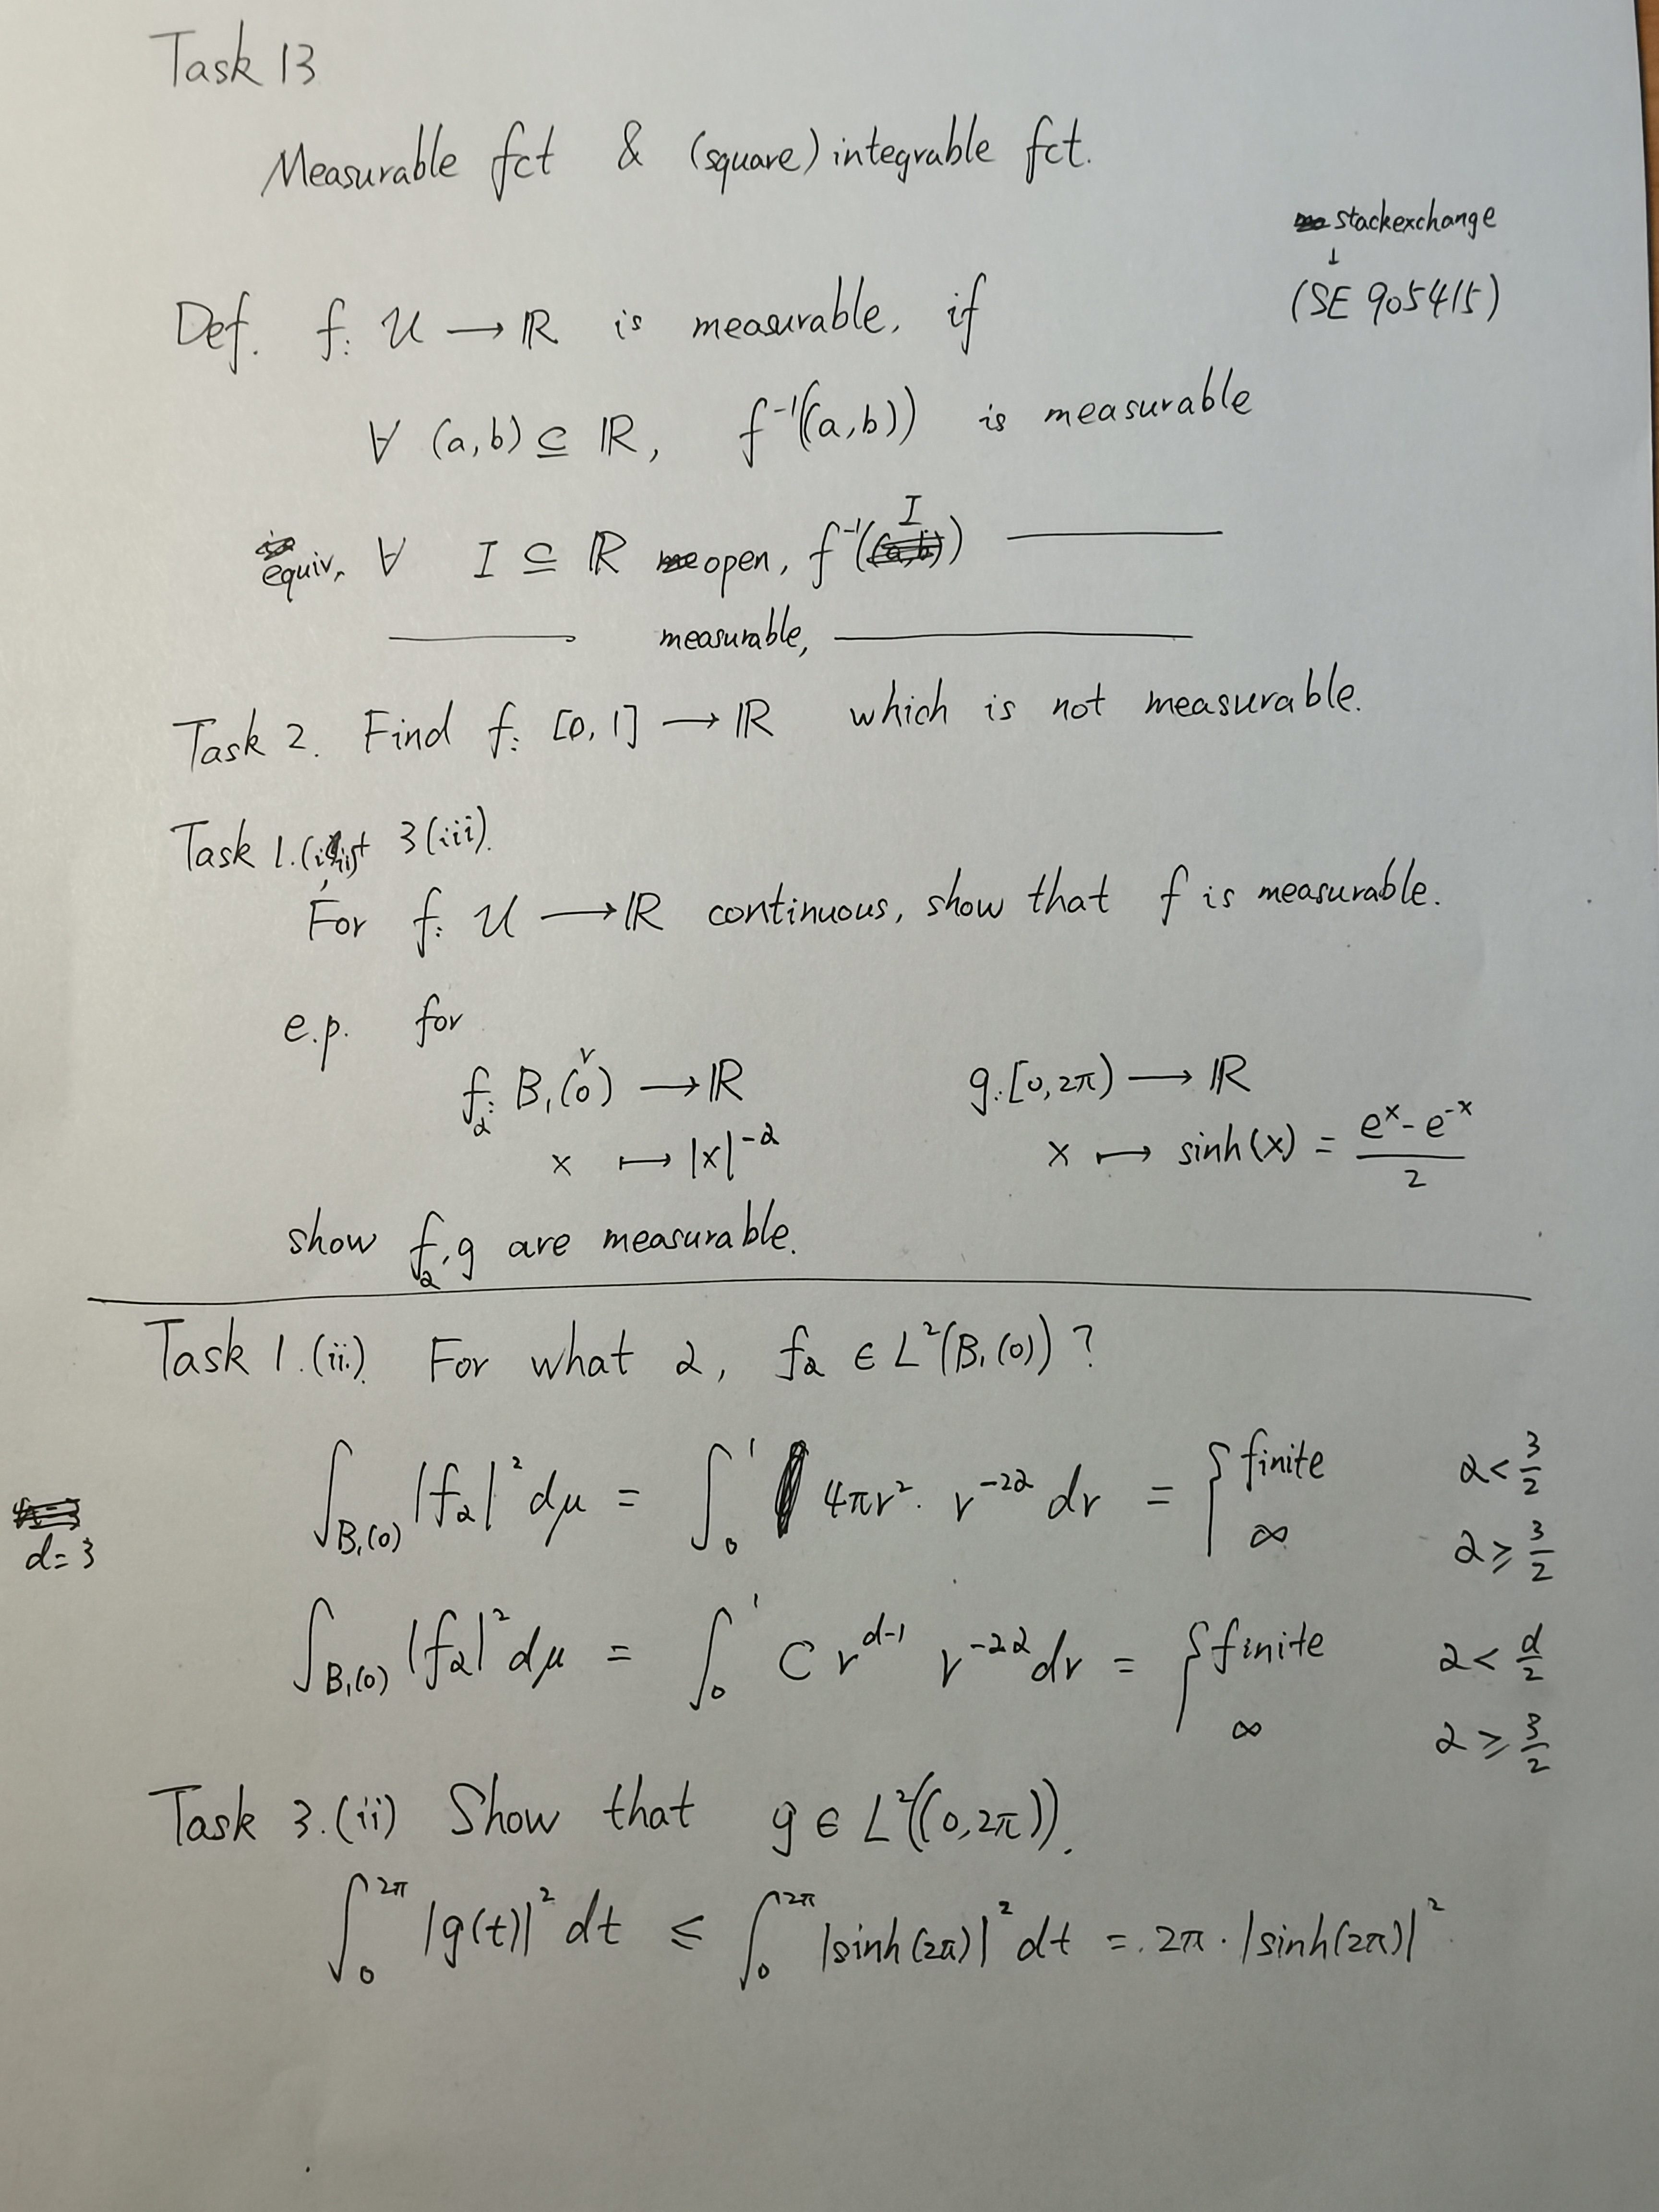 Task 13
Measurable fct & (square) integrable fct.
stackexchange
↓
(SE 905415)
Def. f: U → ℝ is measurable, if
∀ (a,b) ⊆ ℝ, f⁻¹((a,b)) is measurable
equiv. ∀ I ⊆ ℝ open, f⁻¹(I) ———
——— measurable, ———
Task 2. Find f: [0,1] → ℝ which is not measurable.
Task 1. 3(iii).
For f: U → ℝ continuous, show that f is measurable.
e.p. for
f_α: B₁(0) → ℝ g: [0,2π) → ℝ
x ↦ |x|^{-α} x ↦ sinh(x) = (e^x - e^{-x})/2
show f_α, g are measurable.
Task 1.(ii). For what α, f_α ∈ L²(B₁(0))?
∫_{B₁(0)} |f_α|² dμ = ∫_0^1 4πr² · r^{-2α} dr = { finite α < 3/2
∞ α ⩾ 3/2
d=3
∫_{B₁(0)} |f_α|² dμ = ∫_0^1 C r^{d-1} r^{-2α} dr = { finite α < d/2
∞ α ⩾ 3/2
Task 3.(ii) Show that g ∈ L²((0,2π)).
∫_0^{2π} |g(t)|² dt ⩽ ∫_0^{2π} |sinh(2π)|² dt = 2π · |sinh(2π)|²